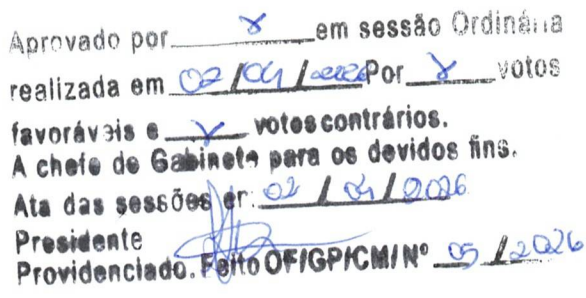 Aprovado por ɣ em sessão Ordinária
realizada em 02/04/2026 Por ɣ votos
favoráveis e ɣ votos contrários.
A chefe de Gabinete para os devidos fins.
Ata das sessões er: 02/04/2026
Presidente
Providenciado. Feito OF/GP/CM/Nº 05/2026